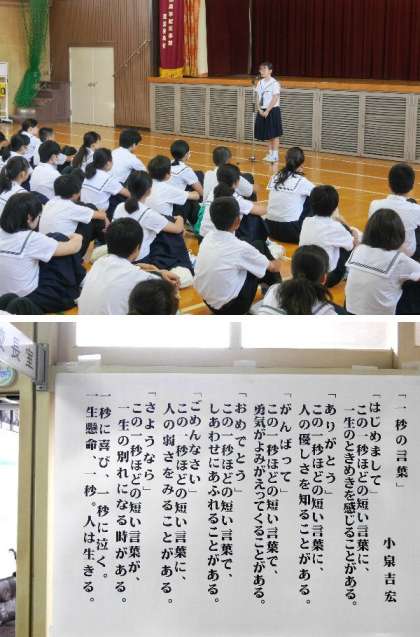 「一秒の言葉」
小泉吉宏
「はじめまして」
この一秒ほどの短い言葉に、
一生のときめきを感じることがある。
「ありがとう」
この一秒ほどの短い言葉に、
人の優しさを知ることがある。
「がんばって」
この一秒ほどの短い言葉で、
勇気がよみがえってくることがある。
「おめでとう」
この一秒ほどの短い言葉で、
しあわせにあふれることがある。
「ごめんなさい」
この一秒ほどの短い言葉に、
人の弱さをみることがある。
「さようなら」
この一秒ほどの短い言葉が、
一生の別れになる時がある。
一秒に喜び、一秒に泣く。
一生懸命、一秒。人は生きる。